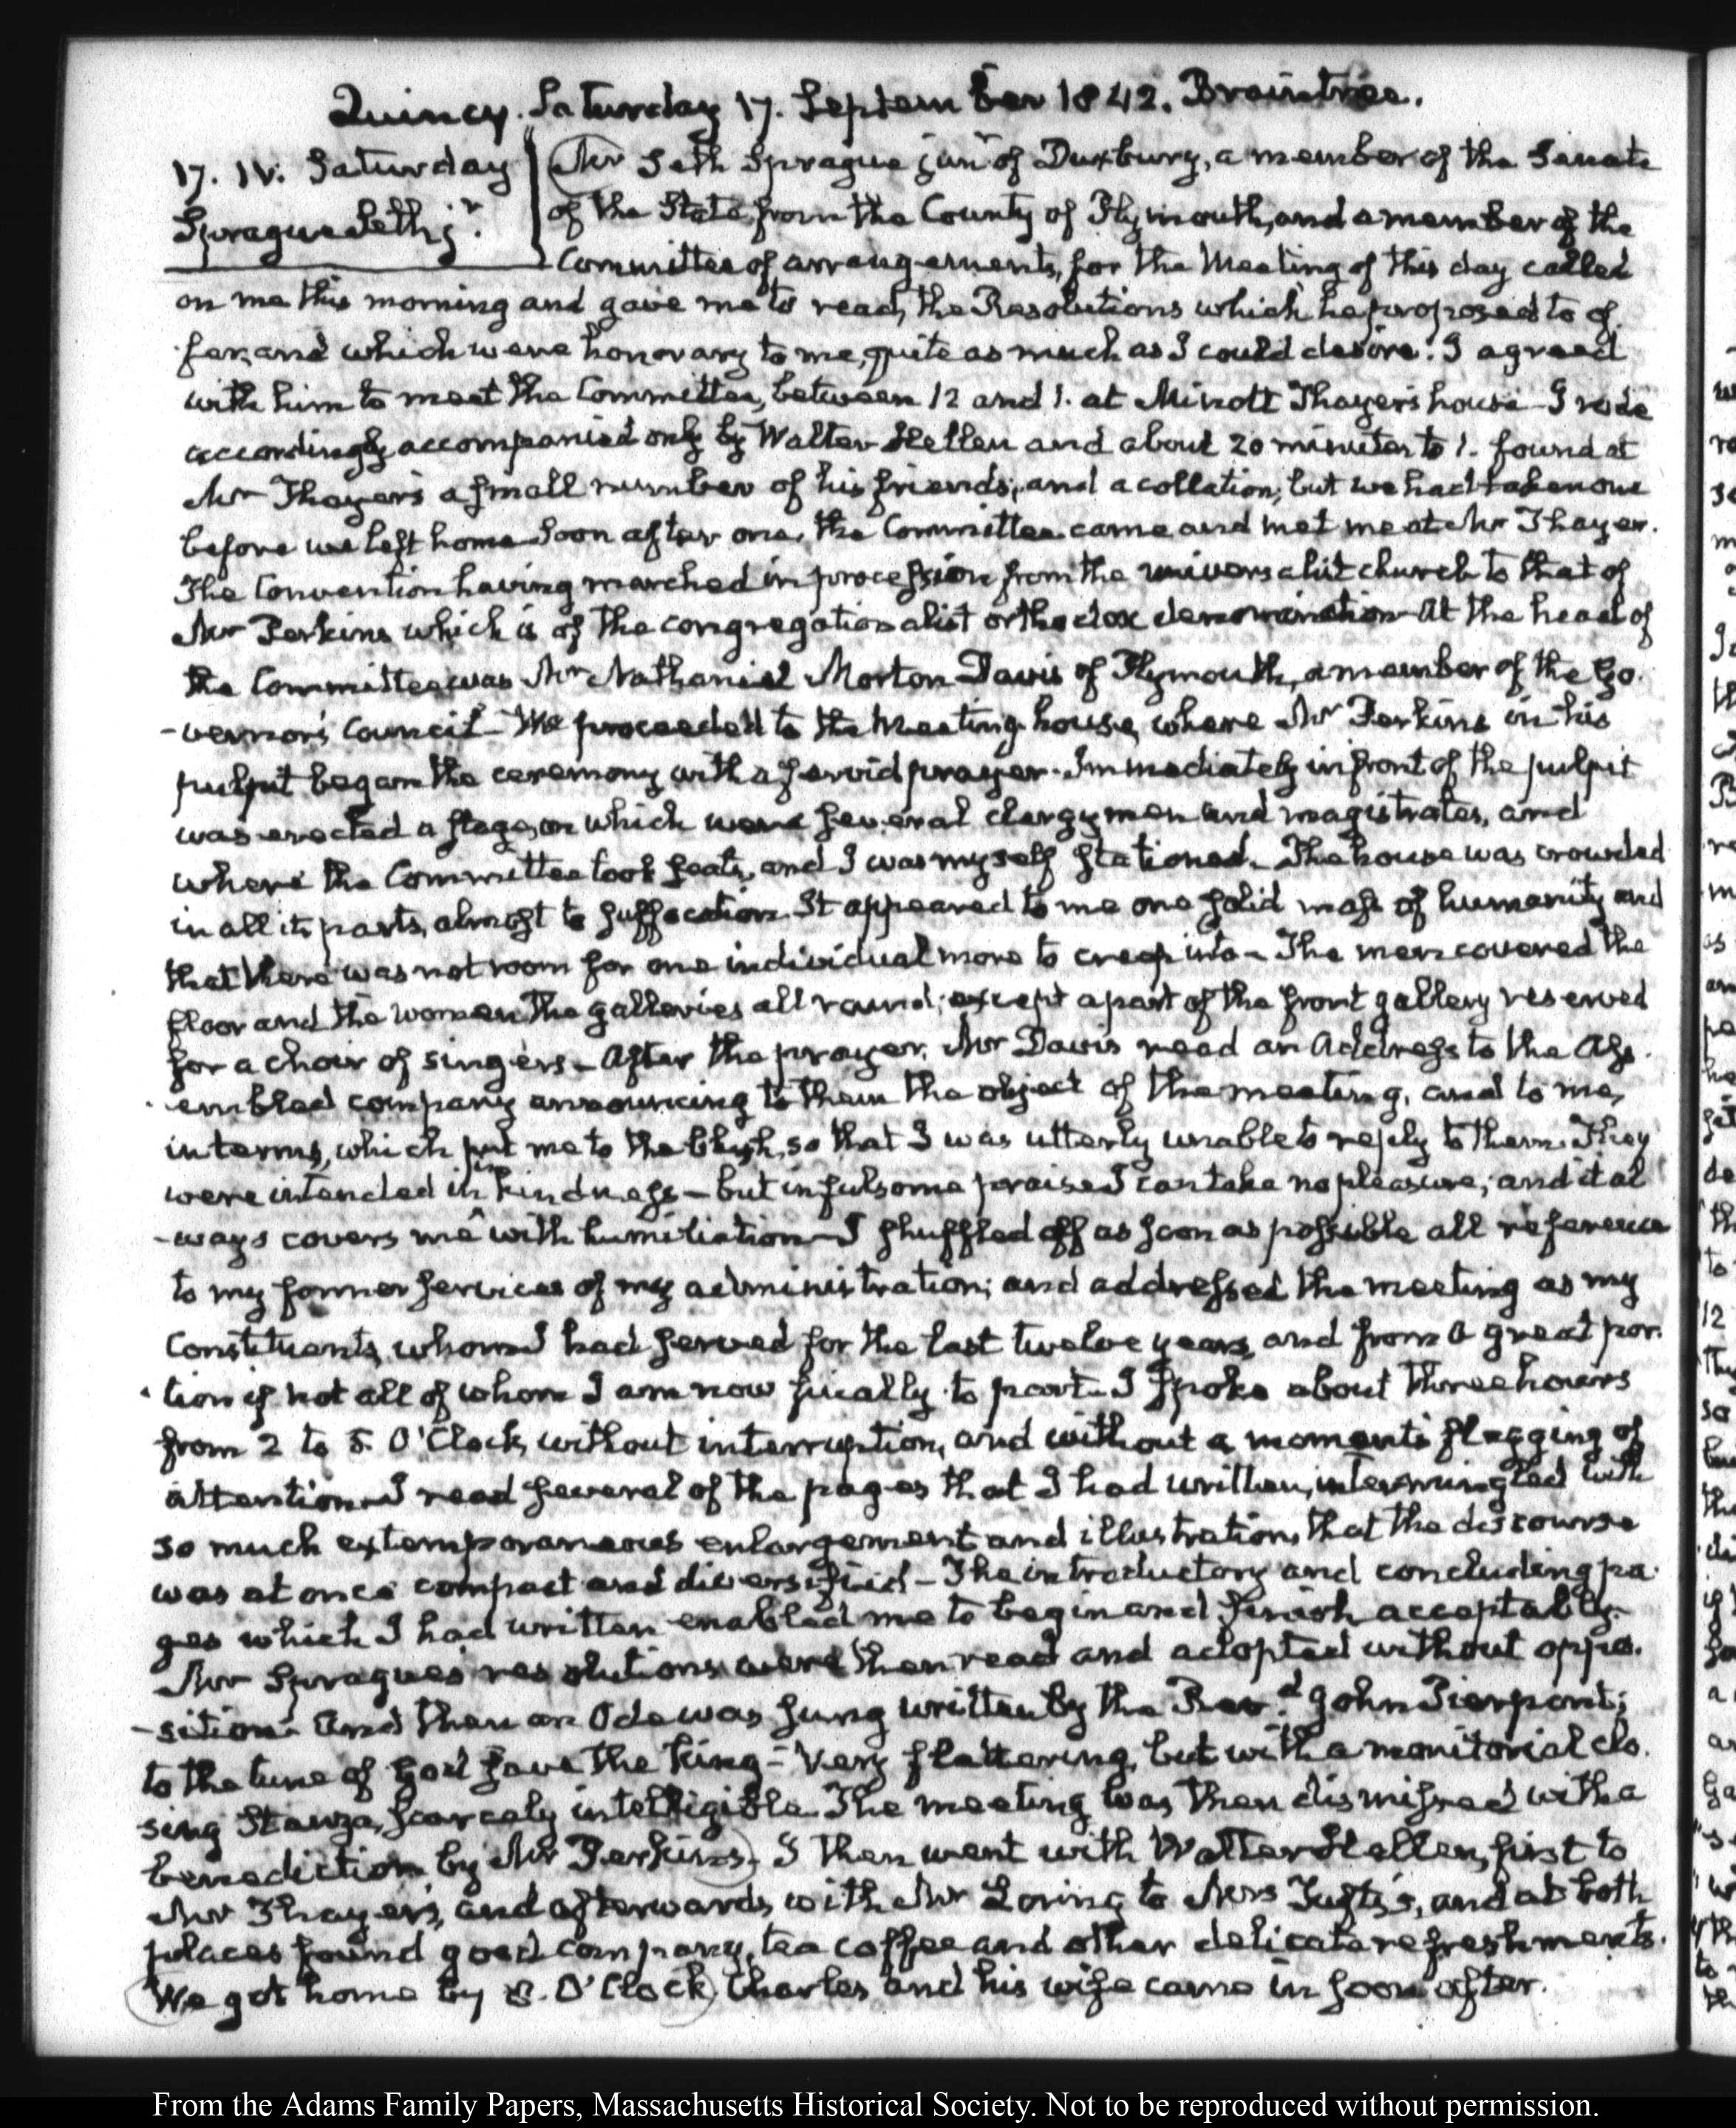 Quincy. Saturday 17. September 1842. Braintree.
17. IV. Saturday
Sprague Seth jr.
Mr Seth Sprague junr of Duxbury, a member of the Senate
of the State, from the County of Plymouth, and a member of the
Committee of arrangements, for the Meeting of this day called
on me this morning and gave me to read, the Resolutions which he proposed to of
fer, and which were honorary to me, quite as much as I could desire. I agreed
with him to meet the Committee, between 12 and 1. at Minott Thayer's house. I rode
accordingly accompanied only by Walter Hellen and about 20 minutes to 1. found at
Mr Thayer's a small number of his friends, and a collation, but we had taken one
before we left home. Soon after one, the Committee came and met me at Mr Thayer.
The Convention having marched in procession from the universalist church to that of
Mr Perkins which is of the congregationalist orthodox denomination. At the head of
the Committee was Mr Nathaniel Morton Davis of Plymouth, a member of the Go-
-vernor's Council. We proceeded to the Meeting house, where Mr Perkins in his
pulpit began the ceremony with a fervid prayer. Immediately in front of the pulpit
was erected a stage, on which were several clergymen and magistrates, and
where the Committee took seats, and I was myself stationed. The house was crowded
in all its parts, almost to suffocation. It appeared to me one solid mass of humanity and
that there was not room for one individual more to creep into. The men covered the
floor and the women the galleries all round; except a part of the front gallery reserved
for a choir of singers. After the prayer, Mr Davis read an Address to the Ass-
-embled company announcing to them the object of the meeting, and to me,
in terms, which put me to the blush, so that I was utterly unable to reply to them. They
were intended in kindness - but in fulsome praise I can take no pleasure; and it al
-ways covers me with humiliation. I shuffled off as soon as possible all reference
to my former services of my administration; and addressed the meeting as my
Constituents, whom I had served for the last twelve years, and from a great por-
-tion if not all of whom I am now finally to part. I spoke about three hours
from 2 to 5. O'Clock, without interruption, and without a moment's flagging of
attention. I read several of the pages that I had written, intermingled with
so much extemporaneous enlargement and illustration, that the discourse
was at once compact and diversified - The introductory and concluding pa-
ges which I had written enabled me to begin and finish acceptably.
Mr Sprague's resolutions were then read and adopted without oppo-
-sition. And then an Ode was sung written by the Revd. John Pierpont;
to the tune of God save the King - Very flattering, but with a monitorial clo-
sing Stanza, scarcely intelligible. The meeting was then dismissed with a
benediction by Mr Perkins. I then went with Walter Hellen, first to
Mr Thayer's, and afterwards, with Mr Loring to Mrs Tufts's, and at both
places found good company, tea coffee and other delicate refreshments.
We got home by 8. O'Clock. Charles and his wife came in soon after.
From the Adams Family Papers, Massachusetts Historical Society. Not to be reproduced without permission.